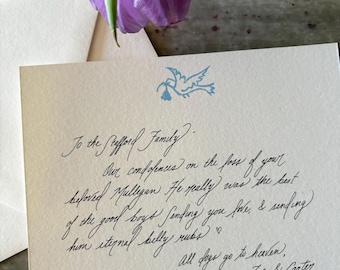 To the Pafford Family -
Our condolences on the loss of your
beloved Mulligan He really was the best
of the good boys Sending you love, & sending
him eternal belly rubs ♡
All dogs go to heaven,